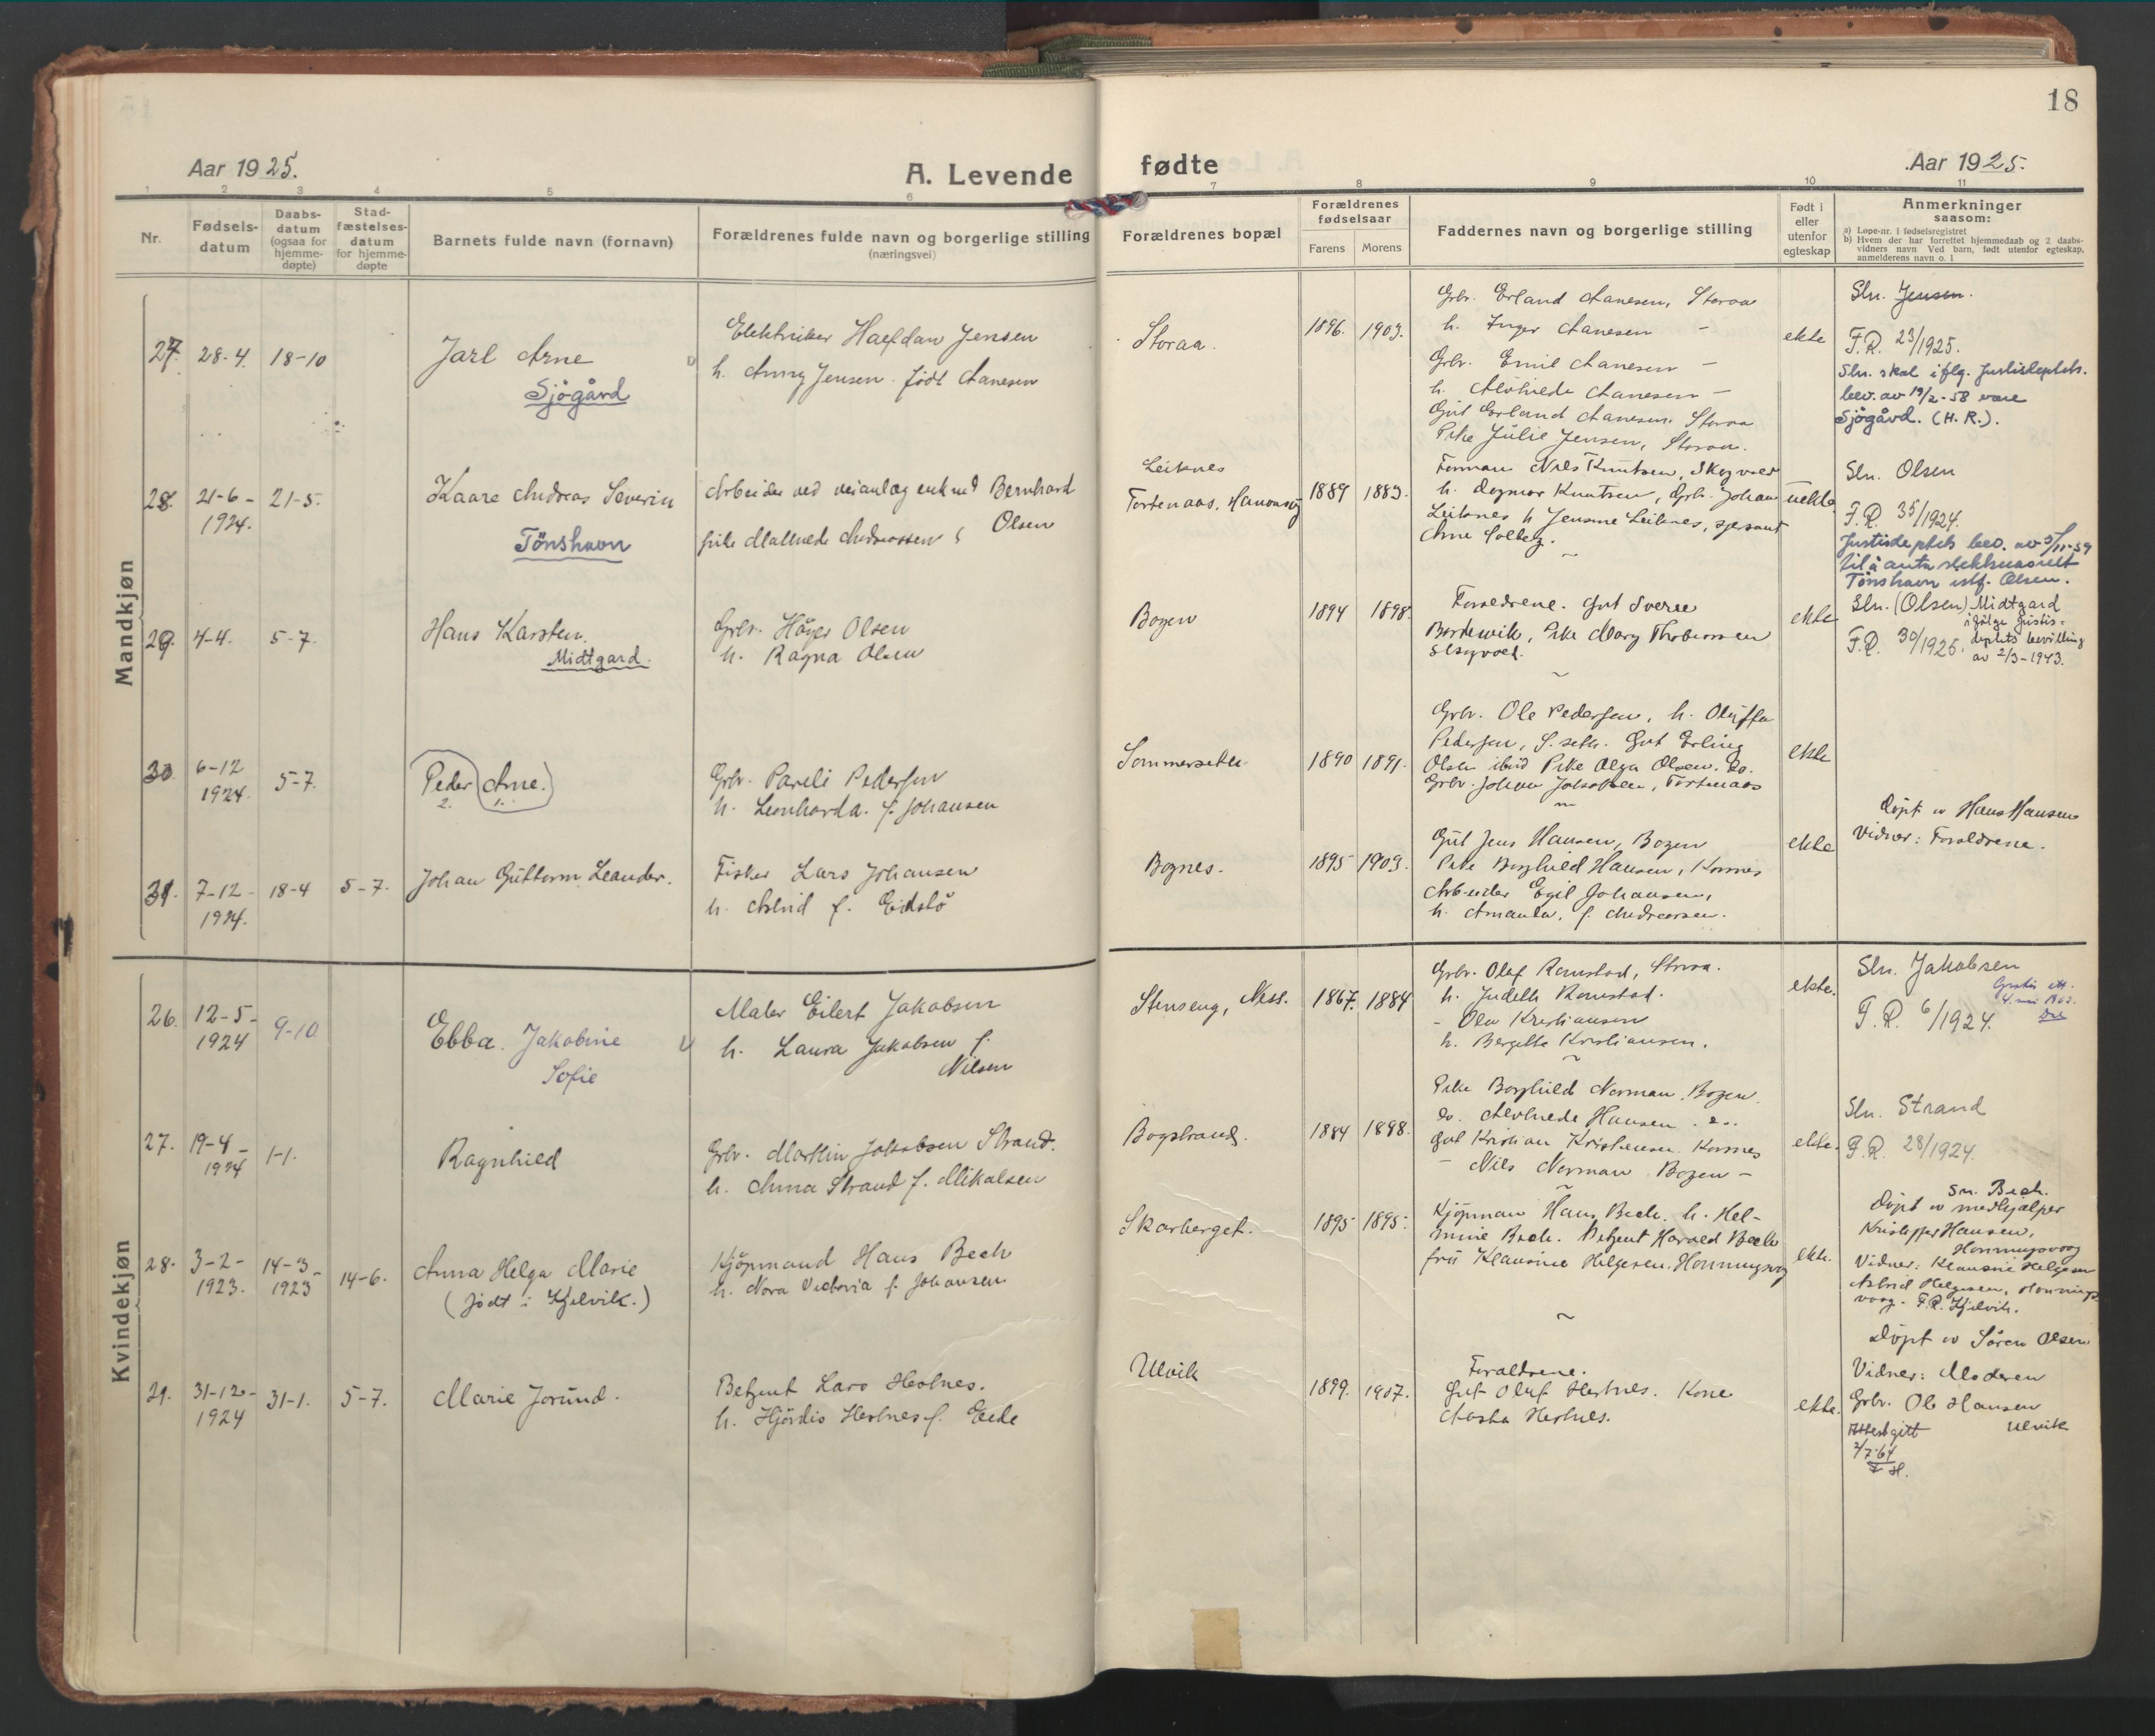 18
Aar 1925.
A. Levende
fødte
Aar 1925.
1
2
3
4
5
6
7
8
9
10
11
Nr.
Fødsels-
datum
Daabs-
datum
(ogsaa for
hjemme-
døpte)
Stad-
fæstelses-
datum
for hjemme-
døpte
Barnets fulde navn (fornavn)
Forældrenes fulde navn og borgerlige stilling
(næringsvei)
Forældrenes bopæl
Forældrenes
fødselsaar
Farens
Morens
Faddernes navn og borgerlige stilling
Født i
eller
utenfor
egteskap
Anmerkninger
saasom:
a) Løpe-nr. i fødselsregistret
b) Hvem der har forrettet hjemmedaab og 2 daabs-
vidners navn Ved barn, født utenfor egteskap,
anmelderens navn o. l
Mandkjøn
27. 28-4. 18-10
Jarl Arne
Sjögård
Elektriker Halfdan Jensen
h. Anny Jensen. født Aanesen
Storaa.
1896. 1903.
Grbr. Erland Aanesen, Storaa
h. Inger Aanesen -
Grbr. Emil Aanesen -
h. Alvhilde Aanesen -
Gut Erland Aanesen. Storaa
Pike Julie Jensen, Storaa.
ekte
Sln. Jensen.
F.R. 23/1925.
Sln. skal iflg. Justisdeptets.
bev. av 19/2-58 være
Sjögård. (H. R.).
28. 21-6-
1924.
21-5.
Kaare Andreas Severin
Tönshavn
Arbeider ved veianlæg enkem. Bernhard
Olsen
pike Mathilde Andreassen
Leiknes
Tortenaas,
1889 1883.
Formann Nils Knutsen, Skogvold
h. Dagmar Knutsen, Grb. Johan
Leiknes h Jensine Leiknes, sersjant
Arne Solberg.
uekte
Sln. Olsen
F.R. 35/1924.
Justisdeptets bev. av 5/11-59
til å anta slektsnavnet
Tönshavn istf. Olsen.
29. 4-4. 5-7.
Hans Karsten.
Midtgard.
Grbr. Håger Olsen
h. Ragna Olsen
Bogen
1894 1898.
Forældrene. Gut Sverre
Bordewik, Pike Mary Thobiassen
ekte
Sln. (Olsen) Midtgard
ifölge Justis-
deptets bevilling
av 2/3-1943.
F.R. 30/1925.
30. 6-12
1924.
5-7.
Peder Arne.
2. 1.
Grbr. Pareli Pedersen
h. Leonharda. f. Johansen
Sommersette
1890 1891.
Grbr. Ole Pedersen, h. Oluffa
Pedersen, S.seth. Gut Erling
Olsen ibid Pike Olga Olsen. Do.
Grbr. Johan Jakobsen, Tortenaas
ekte
31. 7-12-
1924.
18-4 5-7.
Johan Guttorm Leander.
Fisker Lars Johansen
h. Astrid f. Eidslö
Bognes.
1895 1903.
Gut Jens Hansen, Bogen
Pike Borghild Hansen, Korsnes
Arbeider Egil Johansen,
h. Amanda, f. Andreassen.
ekte
Döpt av Hans Hansen
Vidner: Forældrene.
Kvindekjøn
26. 12-5-
1924
9-10
Ebba. Jakobine
Sofie
Maler Eilert Jakobsen
h. Laura Jakobsen f.
Nilsen
Stenseng, Ness.
1867. 1884
Grbr. Olaf Ramstad, Storaa.
h. Judith Ramstad.
- Ola Kristiansen
h. Bergitte Kristiansen.
ekte.
Sln. Jakobsen
F. R. 6/1924.
27. 19-4-
1924
1-1.
Ragnhild
Grbr. Martin Jakobsen Strand.
h. Anna Strand f. Mikalsen
Bogstrand.
1884 1898.
Pike Borghild Norman. Bogen.
do. Alvhilde Hansen. do.
Gut Kristian Kristensen Korsnes
- Nils Norman Bogen -
ekte.
Sln. Strand
F.R. 28/1924.
28. 3-2-
1923.
14-3-
1923
14-6.
Anna Helga Marie
(født i Kjelvik.)
Kjöpmand Hans Bech
h. Nora Victoria f. Johansen
Skarberget.
1895 1895.
Kjöpman Hans Bech. h. Hel-
mine Bech. Betjent Harald Bech
fru Klausine Helgesen. Honningsvog
ekte.
Sn. Bech.
Döpt av medhjælper
Kristoffer Hansen,
Honningsvog
Vidner: Klausine Helgesen
Astrid Helgesen, Honnings
voog. F.R. Kjelvik.
29. 31-12-
1924
31-1. 5-7.
Marie Jorund.
Betjent Lars Hestnes.
h. Hjördis Hestnes f. Eide
Ulvik
1899. 1907.
Forældrene.
Gut Oluf Hestnes. Kone
Aasta Hestnes.
ekte.
Döpt av Sören Olsen
Vidner: Moderen
Grbr. Ole Hansen
Ulvik
Attest gitt
2/7-64